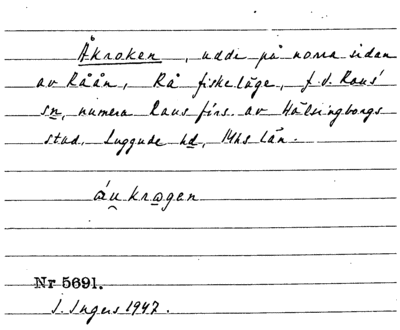 Åkroken, udde på norra sidan
av Råån, Rå fiskeläge, f.d. Raus
sn, numera Raus förs. av Hälsingborgs
stad. Luggude hd, Mhs län.
áu̯ krogen
Nr 5691.
I. Ingers 1947.